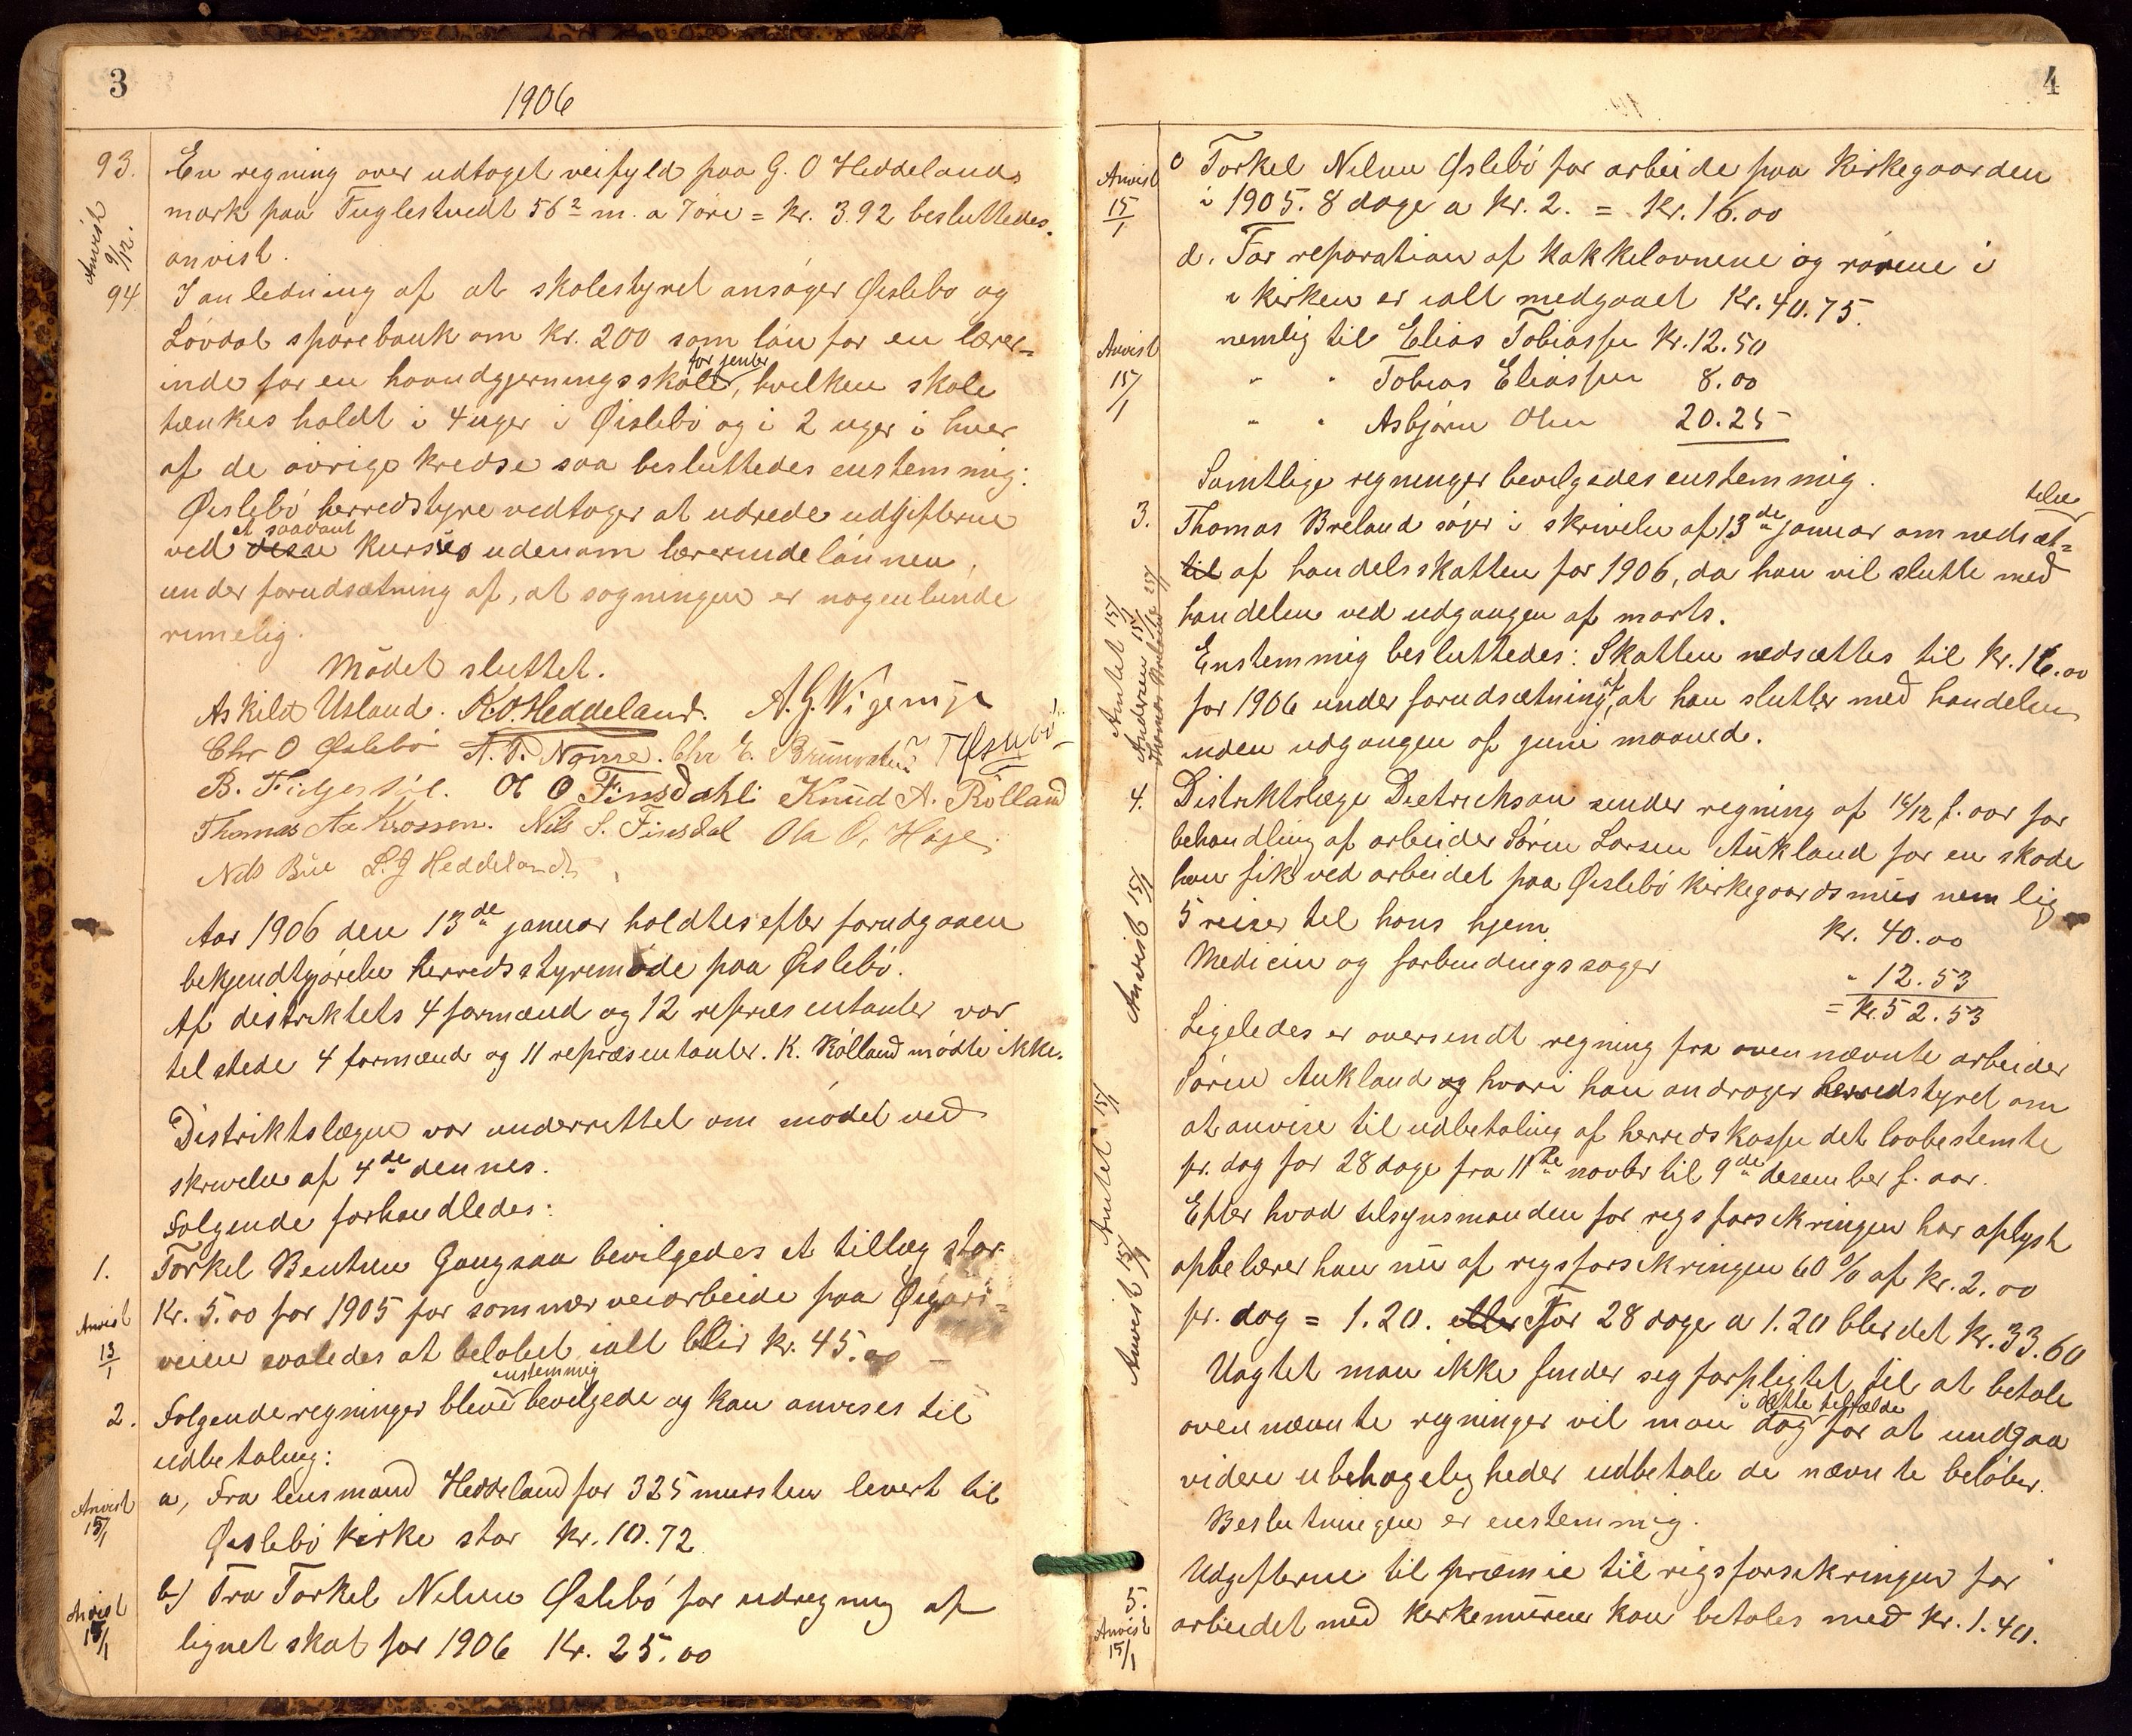 3
1906
93. En regning over udtaget veifyld paa G. O Heddelands
mark paa Fuglestvedt 56² m. a 7 øre = kr. 3.92 besluttedes
Anvist 9/12.
anvist.
94 I anledning af at skolestyret ansøger Øislebø og
Løvdal sparebank om kr. 200 som løn for en lærer-
for jenter
inde for en haandgjerningsskole, hvilken skole
tænkes holdt i 4 uger i Øislebø og i 2 uger i hver
af de øvrige kredse saa besluttedes enstemmig:
Øislebø herredstyre vedtager at udrede udgifterne
et saadant
ved disse kursus udenom lærerindelønnen,
under forudsætning af, at søgningen er nogenlunde
rimelig.
Mødet sluttet.
Askild Usland. K.O. Heddeland. A. G. Vigemyr
Chr O Øslebø A. T. Nome. Chr E.
B. Fidjestøl. O O Finsdahl Knud A. Røilland
Thomas Aa Krossen. Nils S. Finsdal Ola O. Haye
Nils Bue L. J Heddeland
Aar 1906 den 13de januar holdtes efter forudgaaen
bekjendtgjørelse herredsstyremøde paa Øislebø.
Af distriktets 4 formænd og 12 repræsentanter var
tilstede 4 formænd og 11 repræsentanter. K. Røilland mødte ikke.
Distriktslægen var underrettet om mødet ved
skrivelse af 4de dennes.
Følgende forhandledes:
1. Torkel Bentsen Gangsaa bevilgedes et tillæg stor
Kr. 5.00 for 1905 for sommerveiarbeide paa
Anvist 13/1
veien saaledes at beløbet ialt blir kr. 45.00 —
enstemmig
2. Følgende regninger bleve bevilgede og kan anvises til
udbetaling:
Anvist 15/1
a, Fra lensmand Heddeland for 325 mursten levert til
Øislebø kirke stor kr. 10.72
Anvist 15/1
b) Fra Torkel Nilsen Øslebø for udregning af
lignet skat for 1906 Kr. 25.00
4
Anvist 15/1
c Torkel Nilsen Øslebø for arbeide paa Kirkegaarden
i 1905. 8 dage a kr. 2. = Kr. 16.00
d. For reparation af kakkelovnene og rørene i
i kirken er ialt medgaaet Kr. 40.75.
Anvist 15/1
nemlig til Elias Tobiassen Kr. 12.50
" " Tobias Eliassen 8.00
" " Asbjørn Olsen 20.25
Samtlige regninger bevilgedes enstemmig.
telse
3. Thomas Breland søger i skrivelse af 13de januar om nedsæt-
til af handelsskatten for 1906, da han vil slutte med
handelen ved udgangen af marts.
Amtet 15/1
Andersen 15/1
Enstemmig besluttedes: Skatten nedsættes til kr. 16.00
af
for 1906 under forudsætning, at han slutter med handelen
inden udgangen af juni maaned.
4. Distriktslæge Dietrichson sender regning af 16/12 f. aar for
behandling af arbeider Søren Larsen Aukland for en skade
han fik ved arbeidet paa Øislebø kirkegaardsmur nemlig
Anvist 15/1
5 reiser til hans hjem kr. 40.00
Medicin og forbindingssager " 12.53
= Kr. 52.53
Ligeledes er oversendt regning fra ovennævnte arbeider
Søren Aukland og hvori han andrager herredstyret om
at anvise til udbetaling af herredskassen det lovbestemte
Amtet 15/1
pr. dag for 28 dage fra 11te novbr til 9de desember f. aar.
Efter hvad tilsynsmanden for rigsforsikringen har oplyst
oppebærer han nu af rigsforsikringen 60 % af kr. 2.00
Anvist 15/1
pr. dag = 1.20. eller For 28 dage a 1.20 blir det kr. 33.60
Uagtet man ikke finder seg forpligtet til at betale
i dette tilfælde
ovennævnte regninger vil man dog for at undgaa
videre ubehageligheder udbetale de nævnte beløber.
Beslutningen er enstemmig.
5. Udgifterne til præmie til rigsforsikringen for
Anvist 15/1
arbeidet med kirkemuren kan betales med kr. 1.40.